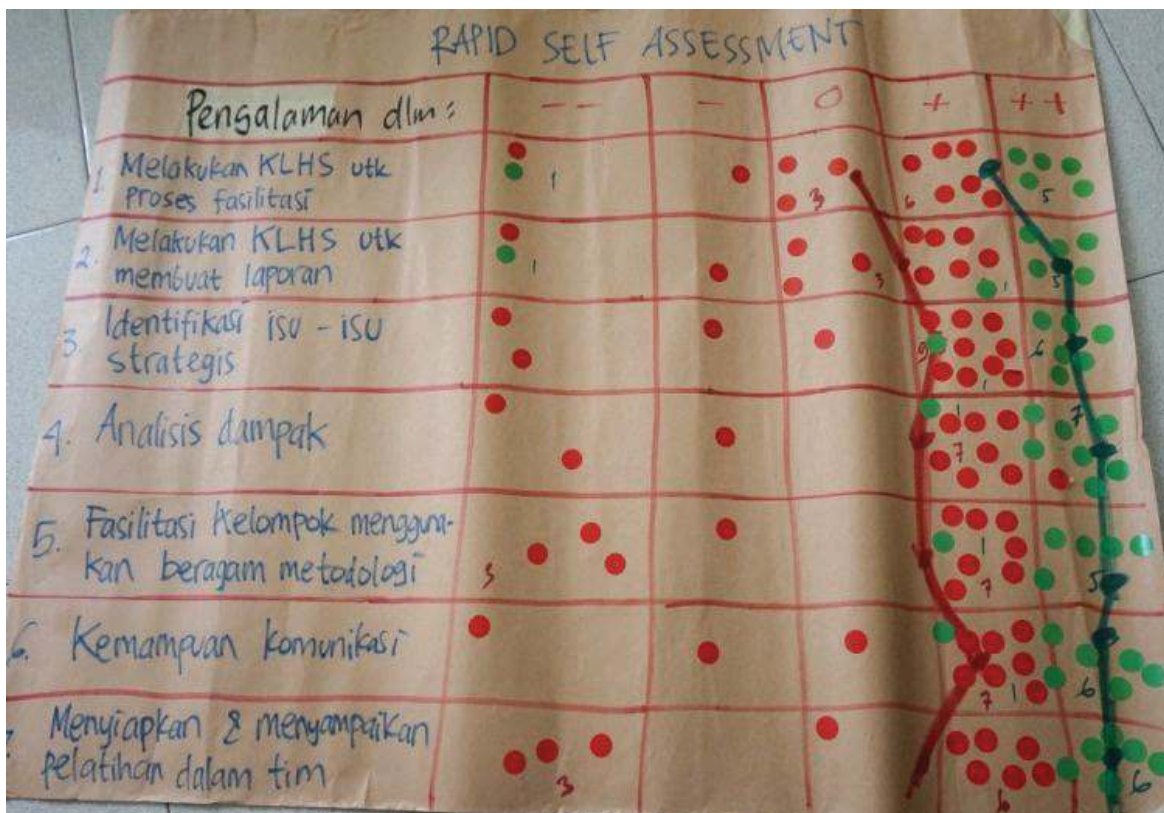 RAPID SELF ASSESSMENT
Pengalaman dlm : -- - O + ++
1. Melakukan KLHS utk
proses fasilitasi
1 3 6 5
2. Melakukan KLHS utk
membuat laporan
1 3 1 5
3. Identifikasi isu - isu
strategis
9 1 6
4. Analisis dampak
1 7 7
5. Fasilitasi Kelompok mengguna-
kan beragam metodologi
3 1 7 5
6. Kemampuan komunikasi
7 1 6
Menyiapkan & menyampaikan
pelatihan dalam tim
3 6 6